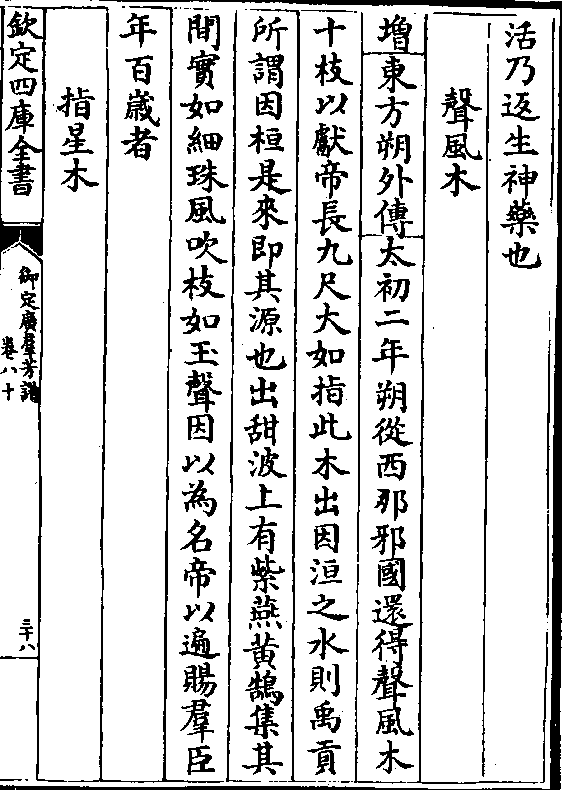 活乃返生神藥也
聲風木
增東方朔外傳太初二年朔從西那邪國還得聲風木
十枝以獻帝長九尺大如指此木出因洹之水則禹貢
所謂因桓是來即其源也出甜波上有紫燕黃鵠集其
間實如細珠風吹枝如玉聲因以為名帝以遍賜羣臣
年百歲者
指星木
欽定四庫全書
御定廣羣芳譜
卷八十
三十八